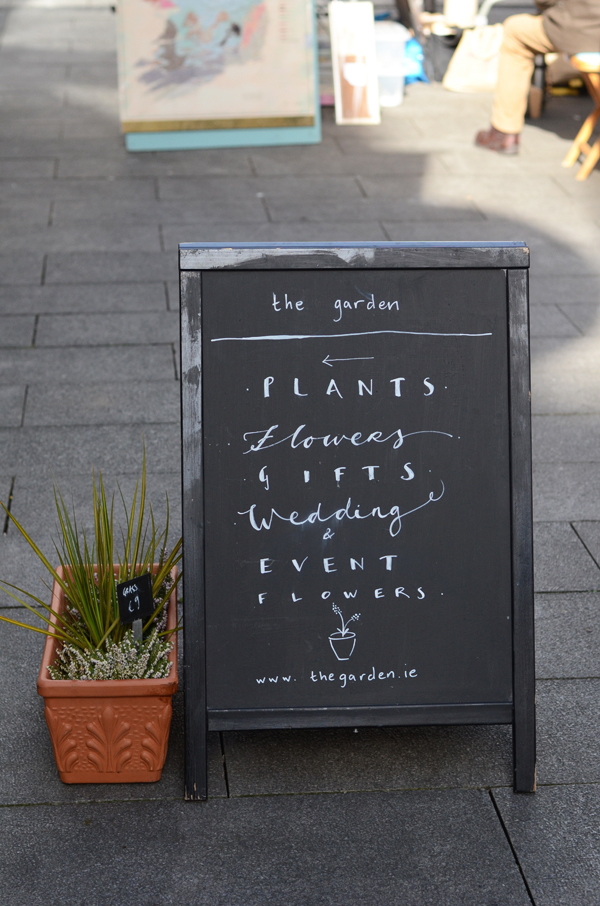 the garden
←
· PLANTS ·
Flowers
GIFTS
Wedding
&
EVENT
FLOWERS.
www.thegarden.ie
€9